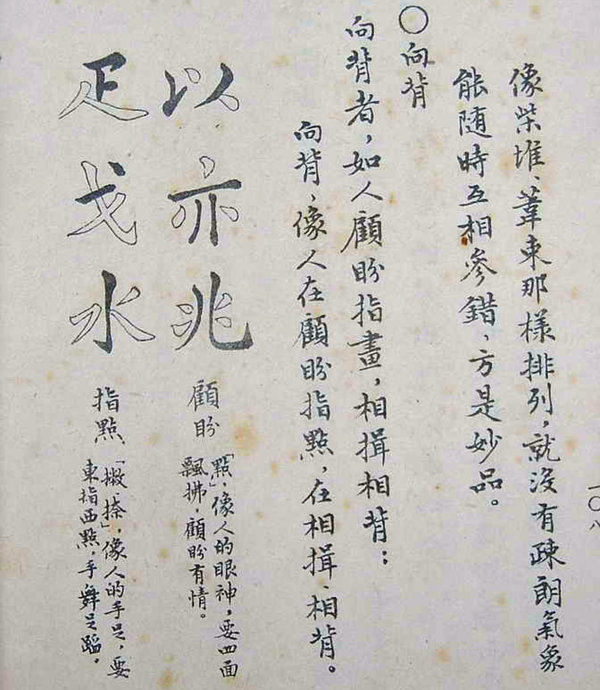 像柴堆、葦束那樣排列，就沒有疎朗氣象
能隨時互相參錯，方是妙品。
○向背
向背者，如人顧盼指畫，相揖相背：
向背，像人在顧盼指點，在相揖、相背。
以亦兆
顧盼
「點」，像人的眼神，要四面
飄拂，顧盼有情。
足戈水
指點
「撇、捺」，像人的手足，要
東指西點，手舞足蹈，
一〇八